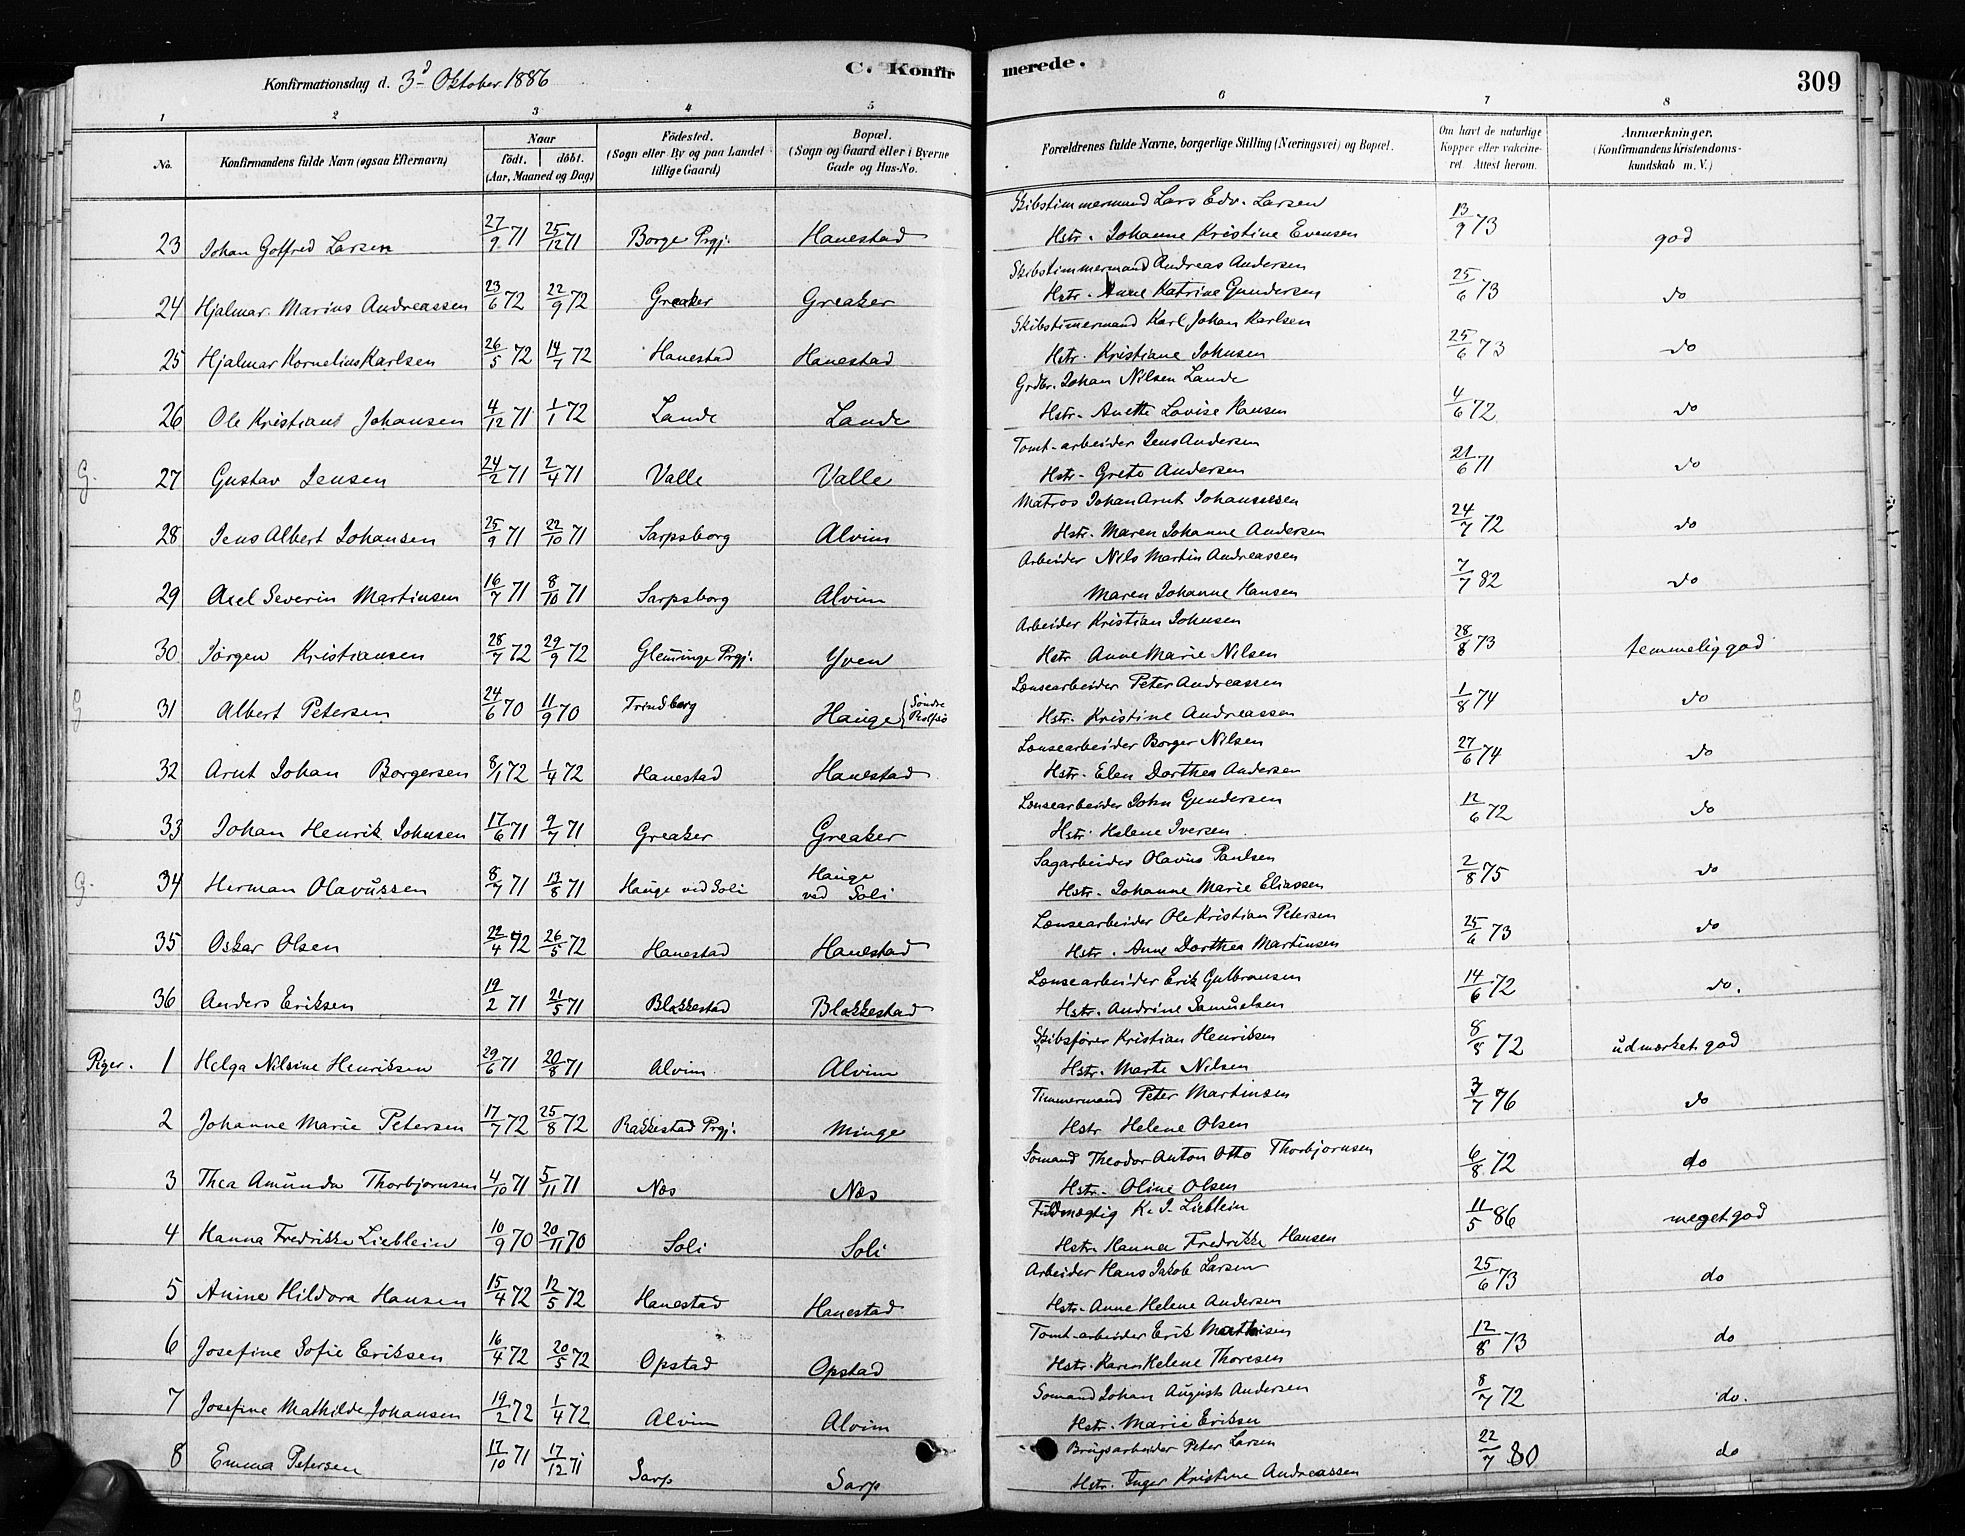 Konfirmationsdag d. 3d Oktober 1886 C. Konfir merede. 309
1 2 3 4 5 6 7 8
No. Konfirmandens fulde Navn (ogsaa Efternavn) Naar födt. döbt. (Aar, Maaned og Dag) Födested. (Sogn eller By og paa Landet tillige Gaard) Bopæl. (Sogn og Gaard eller i Byerne Gade og Hus-No. Forældrenes fulde Navne, borgerlige Stilling (Næringsvei) og Bopæl. Om havt de naturlige Kopper eller vakcineret. Attest herom. Anmærkninger. (Konfirmandens Kristendomskundskab m. V.)
Skibstimmermand Lars Edv. Larsen
23 Johan Gotfred Larsen 27/9 71 25/12 71 Borge Prgj. Hanestad Hstr. Johanne Kristine Evensen 13/9 73 god
Skibstimmermand Andreas Andersen
24 Hjalmar Marius Andreassen 23/6 72 22/9 72 Greaker Greaker Hstr. Anne Katrine Gundersen 25/6 73 do
Skibstimmermand Karl Johan Karlsen
25 Hjalmar Kornelius Karlsen 26/5 72 14/7 72 Hanestad Hanestad Hstr. Kristiane Johnsen 25/6 73 do
Grdbr. Johan Nilsen Lande
26 Ole Kristians Johansen 4/12 71 1/1 72 Lande Lande Hstr. Anette Lovise Hansen 4/6 72 do
Tomt-arbeider Jens Andersen
G. 27 Gustav Jensen 24/2 71 2/4 71 Valle Valle Hstr. Grete Andersen 21/6 71 do
Matros Johan Arnt Johannesen
28 Jens Albert Johansen 25/9 71 22/10 71 Sarpsborg Alvim Hstr. Maren Johanne Andersen 24/7 72 do
Arbeider Nils Martin Andreassen
29 Axel Severin Martinsen 16/7 71 8/10 71 Sarpsborg Alvim Maren Johanne Hansen 7/7 82 do
Arbeider Kristian Johnsen
30 Jörgen Kristiansen 28/7 72 29/9 72 Glemminge Prgj. Yven Hstr Anne Marie Nilsen 28/8 73 temmelig god
Lænsearbeider Peter Andreassen
G 31 Albert Petersen 24/6 70 11/9 70 Trindborg Hauge {Söndre Rolfsö Hstr. Kristine Andreassen 1/8 74 do
Lænsearbeider Borger Nilsen
32 Arnt Johan Borgersen 8/1 72 1/4 72 Hanestad Hanestad Hstr. Elen Dorthea Andersen 27/6 74 do
Lænsearbeider John Gundersen
33 Johan Henrik Johnsen 17/6 71 9/7 71 Greaker Greaker Hstr. Helene Iversen 12/6 72 do
Sagarbeider Olavus Paulsen
G. 34 Herman Olavussen 8/7 71 13/8 71 Hauge ved Soli Hauge ved Soli Hstr. Johanne Marie Eliassen 2/8 75 do
Lænsearbeider Ole Kristian Petersen
35 Oskar Olsen 22/4 72 26/5 72 Hanestad Hanestad Hstr. Anne Dorthea Martinsen 25/6 73 do
Lænsearbeider Erik Gulbransen
36 Anders Eriksen 19/2 71 21/5 71 Blakkestad Blakkestad Hstr. Andrine Samuelsen 14/6 72 do.
Skibsförer Kristian Henriksen
Piger. 1 Helga Nilsine Henriksen 29/6 71 20/8 71 Alvim Alvim Hstr. Marte Nilsen 8/8 72 udmærket god
Timmermand Peter Martinsen
2 Johanne Marie Petersen 17/7 72 25/8 72 Rakkestad Prgj. Minge Hstr Helene Olsen 3/7 76 do
Sömand Theodor Anton Otto Thorbjornsen
3 Thea Amunda Thorbjornsen 4/10 71 5/11 71 Næs Næs Hstr. Oline Olsen 6/8 72 do
Fuldmægtig K. J. Lieblein
4 Hanna Fredrikke Lieblein 10/9 70 20/11 70 Soli Soli Hstr. Hanna Fredrikke Hansen 11/5 86 meget god
Arbeider Hans Jakob Larsen
5 Anine Hildora Hansen 15/4 72 12/5 72 Hanestad Hanestad Hstr. Anne Helene Andersen 25/6 73 do
Tomt-arbeider Erik Mathisen
6 Josefine Sofie Eriksen 16/4 72 20/5 72 Opstad Opstad Hstr. Karen Helene Thoresen 12/8 73 do
Sömand Johan August Andersen
7 Josefine Mathilde Johansen 19/2 72 1/4 72 Alvim Alvim Hstr. Marie Eriksen 8/7 72 do.
Brugsarbeider Peter Larsen
8 Emma Petersen 17/10 71 17/12 71 Sarp Sarp Hstr. Inger Kristine Andreassen 22/7 80 do